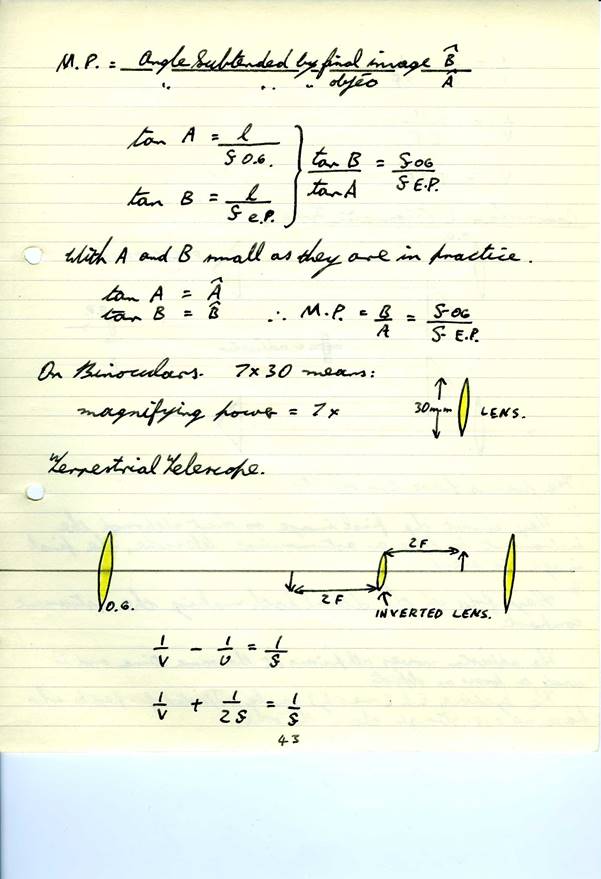 M.P. = Angle Subtended by final image B̂
" " " " objéo Â
tan A = l / f O.G.
tan B / tan A = f OG / f E.P.
tan B = l / f e.P.
With A and B small as they are in practice.
tan A = Â
tan B = B̂ ∴ M.P. = B / A = f OG / f E.P.
On Binoculars. 7x30 means:
magnifying power = 7x 30mm LENS.
Terrestrial Telescope.
2F
2F
O.G. INVERTED LENS.
1/v - 1/u = 1/f
1/v + 1/2f = 1/f
43